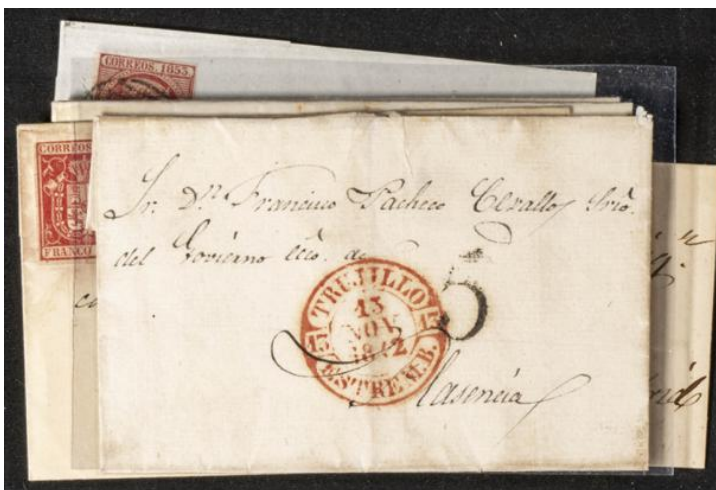 CORREOS. 1853
CORREOS
FRANCO
Sr. Dn. Francisco Pacheco Cevallos Srio.
del Govierno Ecco. de
5
TRUJILLO
13
NOV
1842
15 15
ESTREM.B.
Plasencia